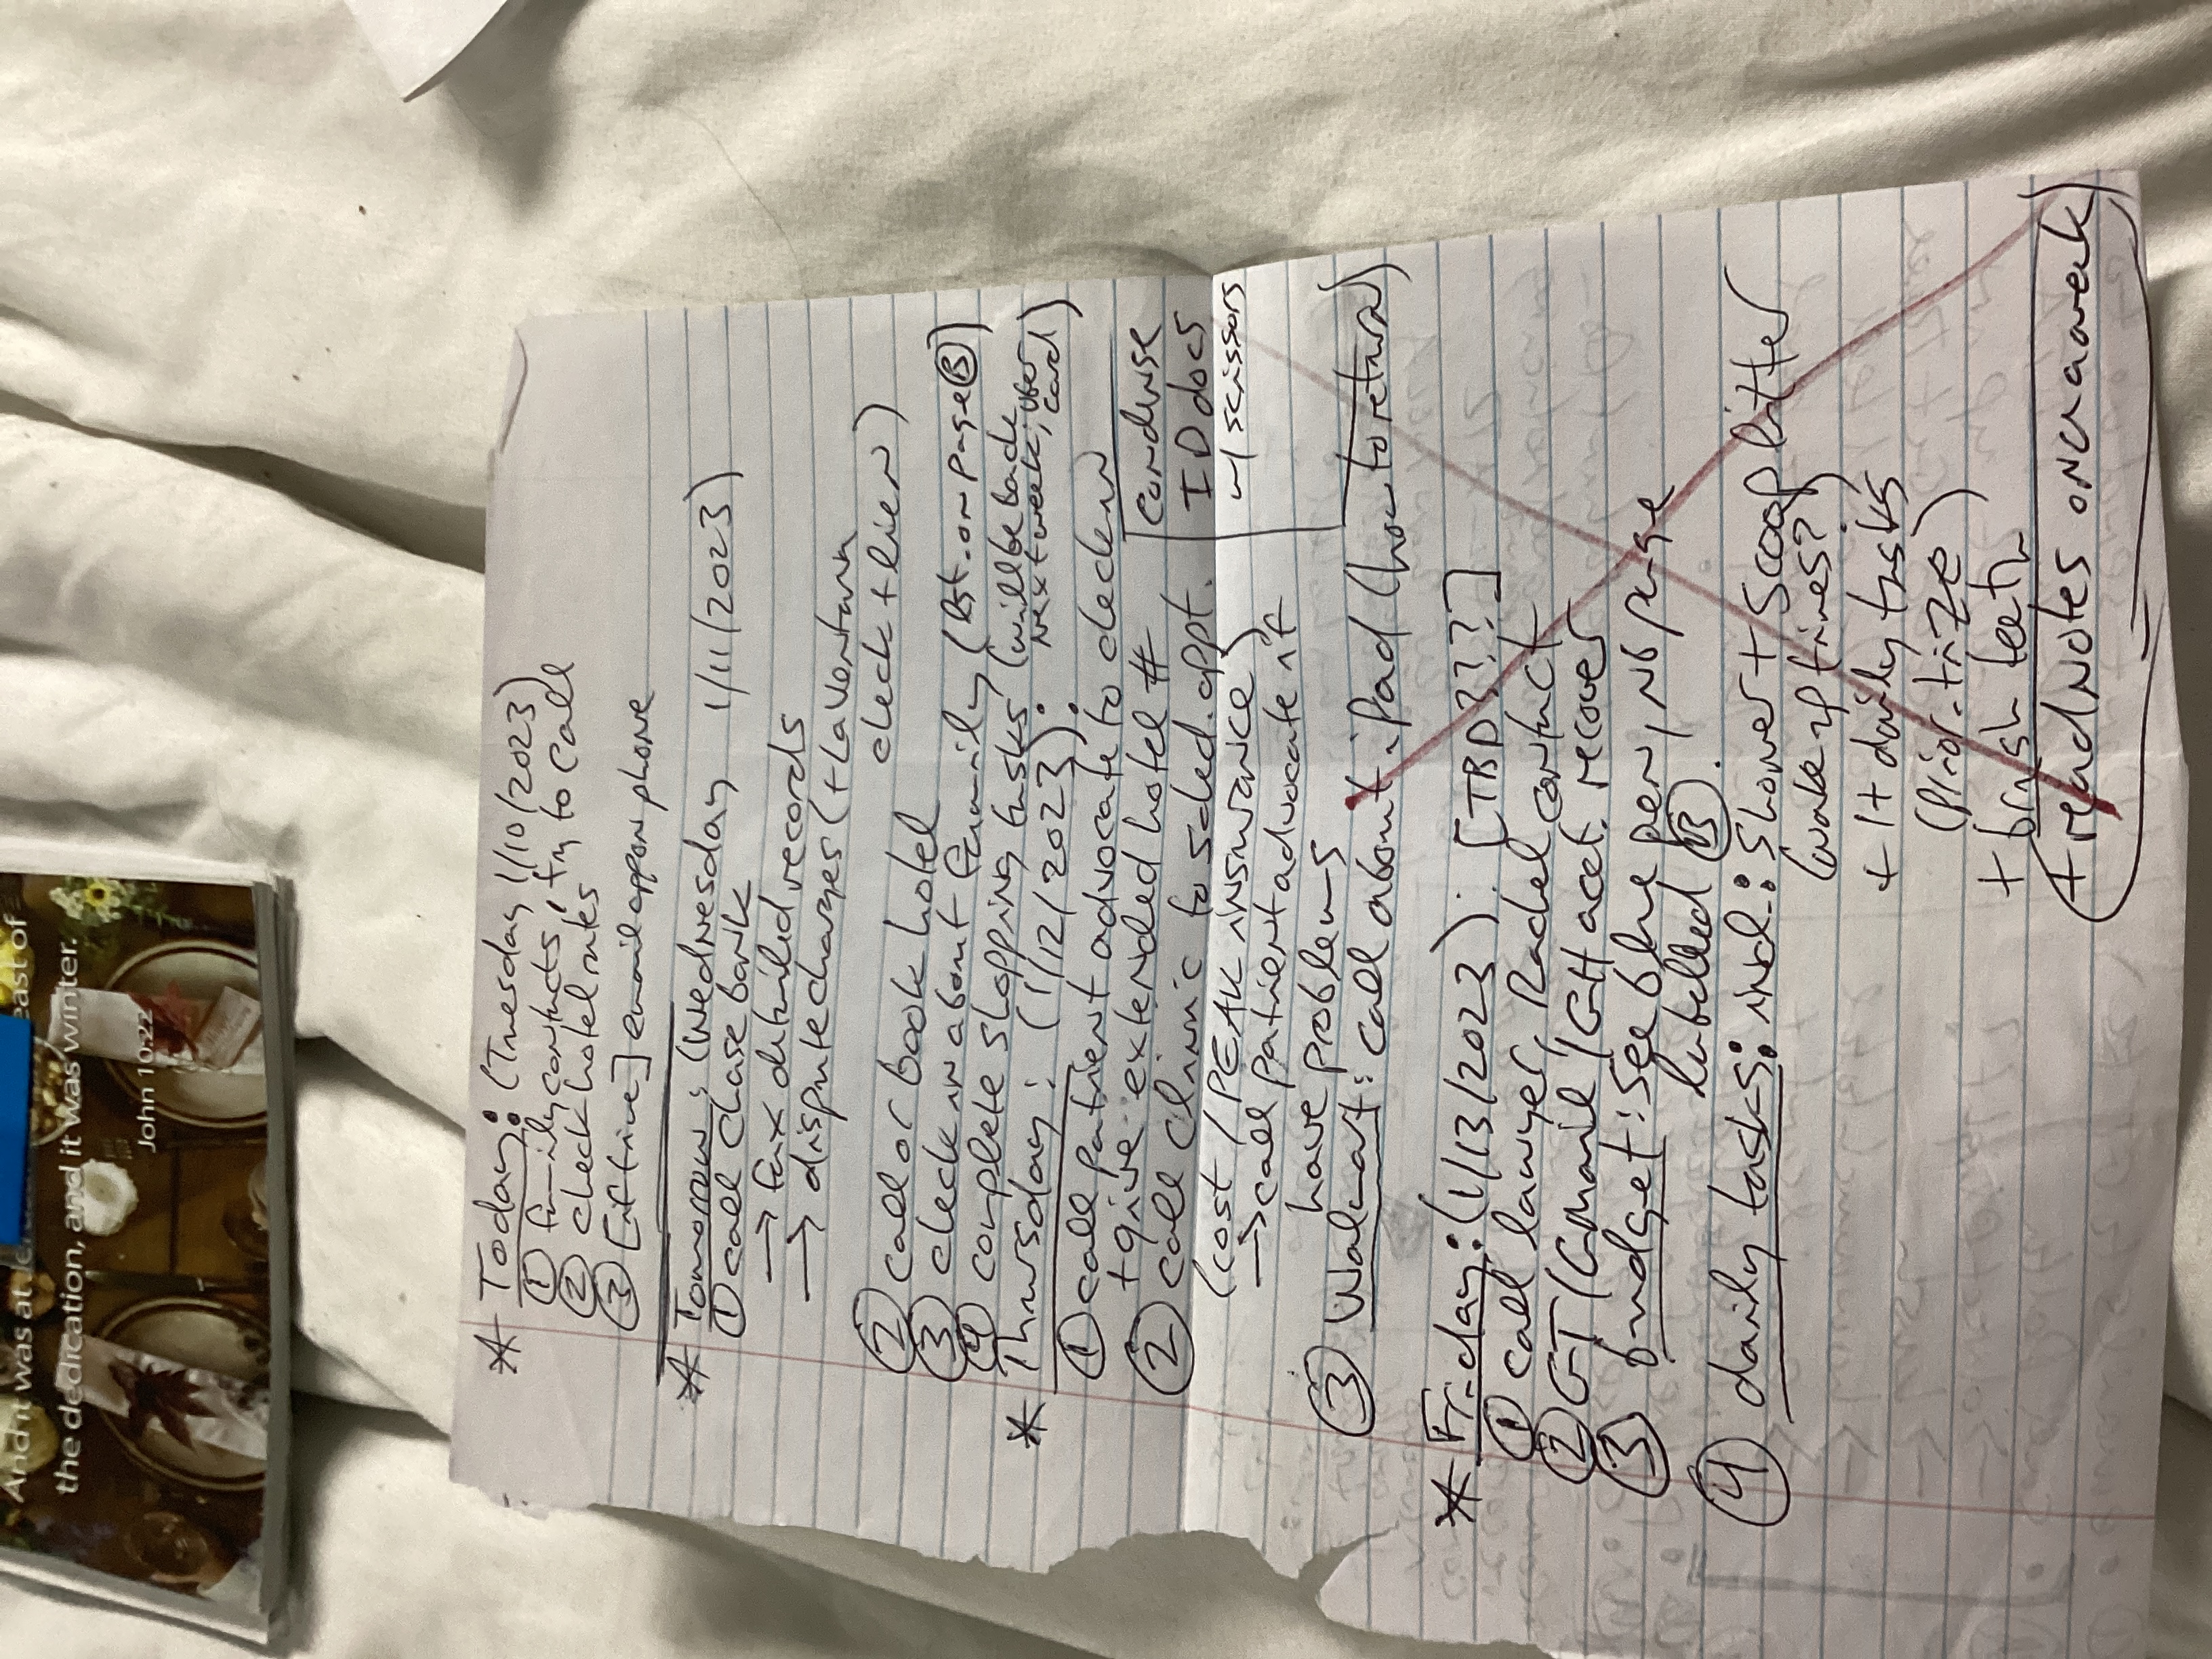 And it was at Je east of
the dedication, and it was winter.
John 10:22
* Today: (Tuesday 1/10/2023)
① family contacts, try to call
② check hotel rates
③ [if time] email app on phone
* Tomorrow: (Wednesday 1/11/2023)
① call Chase bank
→ fax detailed records
→ dispute charges (+ La Ventana
check + lien)
② call or book hotel
③ check in about family (lst. on page Ⓑ)
④ complete shopping tasks (will be back
next week; Uber
card)
* Thursday: (1/12/2023):
① call patient advocate to check in
+ give extended hotel #
② call clinic to sched. appt.
(cost / PEAK insurance)
→ call patient advocate if
have problems
condense
ID docs
w/ scissors
③ Walmart: call about iPad (how to return)
* Friday: (1/13/2023): [TBD???]
① call lawyer, Rachel contact
② GT/Gmail/GH acct. recover
③ budget: see blue pen, NB page
labelled Ⓑ.
④ daily tasks: incl.: shower + scoop litter
(wake up times?)
+ 1+ daily tasks
(prioritize)
+ brush teeth
+ read notes once a week)